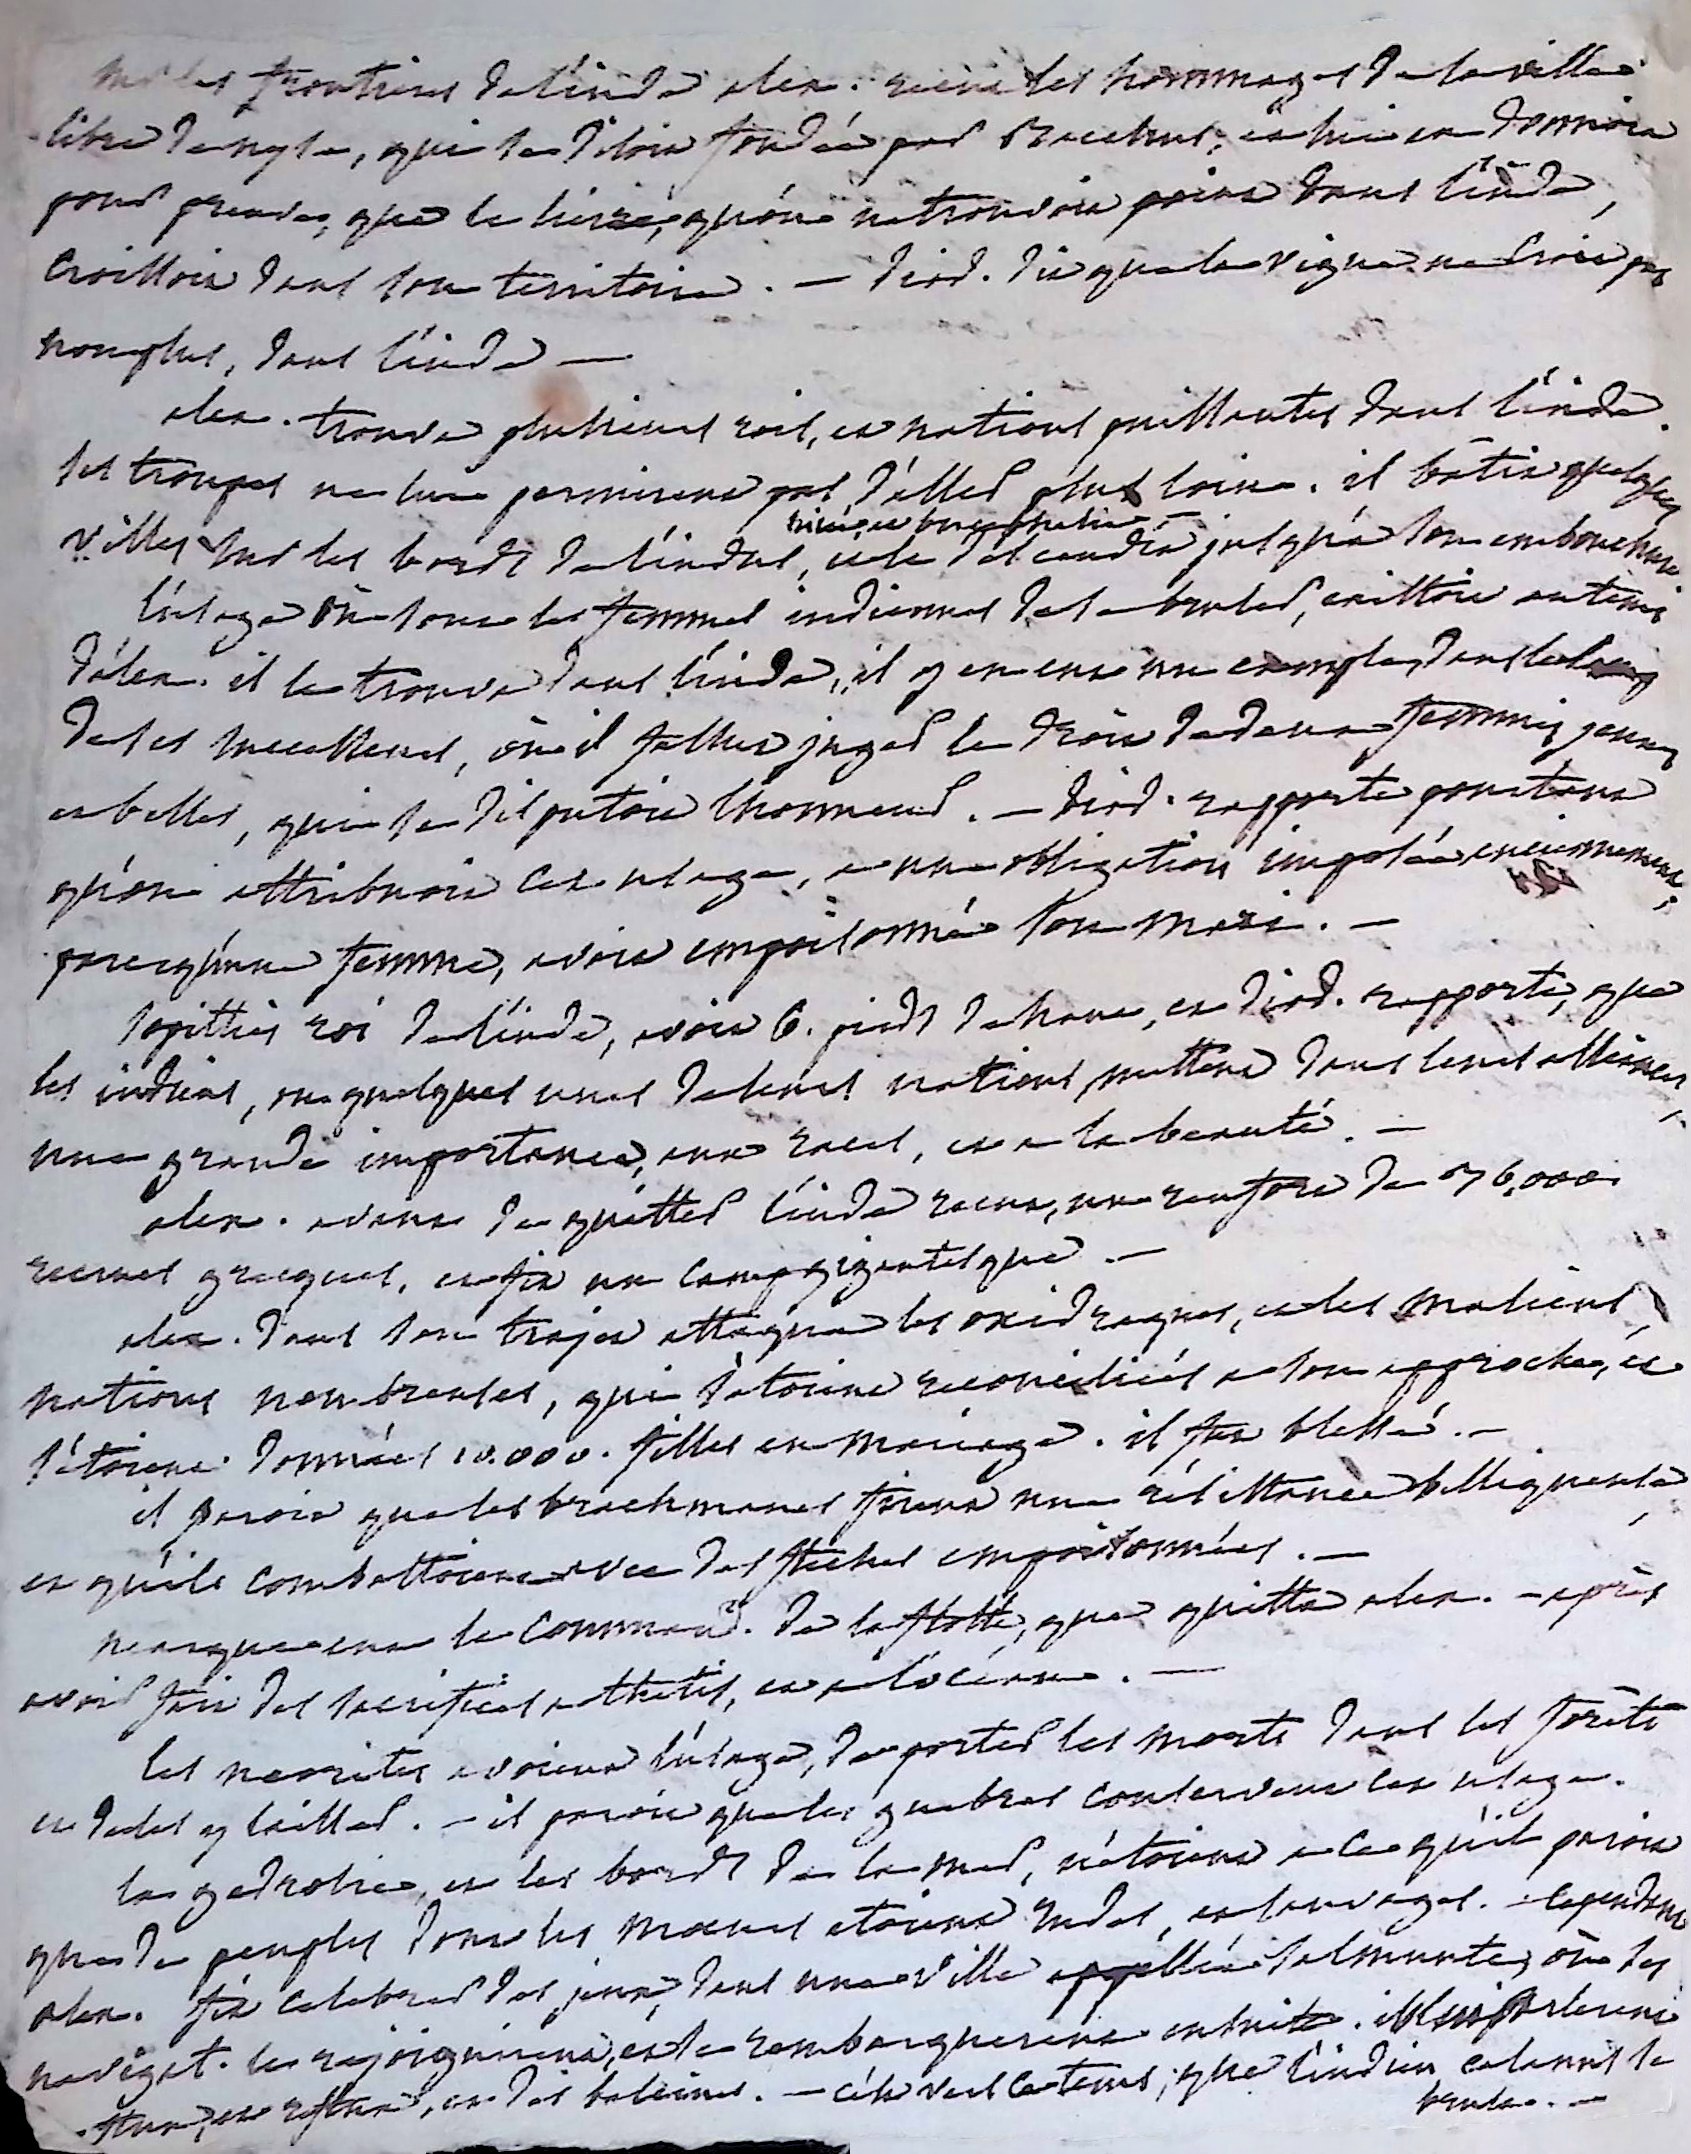 sur les frontieres de l'inde alex. recut les hommages de la ville
libre de nysa, qui se disoit fondée par Bacchus, et lui en donnoit
pour preuve, que le lierre, qu'on ne trouvoit point dans l'inde,
croissoit dans son territoire. — diod. dit que la vigne ne croit pas
non plus, dans l'inde —
alex. trouva plusieurs rois, et nations puissantes dans l'inde.
ses troupes ne lui permirent pas d'aller plus loin. il bâtit quelques
villes sur les bords de l'indus, nicée, et bucephalie, — et le descendit jusqu'à son embouchure
l'usage où sont les femmes indiennes de se bruler, existoit au tems
d'alex. il le trouva dans l'inde, il y en eut un exemple, dans le camp
de ses successeurs, où il fallut juger le droit de deux femmes jeunes
et belles, qui se disputoient l'honneur. — diod. rapporte pourtant
qu'on attribuoit cet usage, a une obligation imposée anciennement,
parcequ'une femme, avoit empoisonné son mari. —
sopithès roi de l'inde, avoit 6. pieds de haut, et diod. rapporte, que
les indiens, ou quelques unes de leurs nations, mettent dans leurs alliances,
une grande importance, aux races, et a la beauté. —
alex. avant de quitter l'inde recut, un renfort de 36,000.
recrues grecques, et fit un camp gigantesque. —
alex. dans son trajet attaqua les oxidraques, et les maliens,
nations nombreuses, qui s'étoient reconciliées a son approche, et
s'étoient données 10.000. filles en mariage. il fut blessé. —
il paroit que les brachmanes firent une résistance belliqueuse,
et qu'ils combattoient avec des fleches empoisonnées. —
nearque eut le command. de la flotte, que quitta alex. — après
avoir fait des sacrifices a thetis, et a l'océan. —
les neorites avoient l'usage, de porter les morts dans les forêts
et de les y laisser. — il paroit que les guebres conservent cet usage.
la gedrosie, et les bords de la mer, n'étoient a ce qu'il paroit
que de peuples dont les moeurs etoient rudes, et sauvages. — cependant
alex. fit celebrer des jeux, dans une ville appellée salmunte, où ses
navigat. le rejoignirent, et se rembarquerent ensuite. ils lui parlerent
flux, et reflux, et des baleines. — c'est vers ce tems, que l'indien calanus se
brula. —